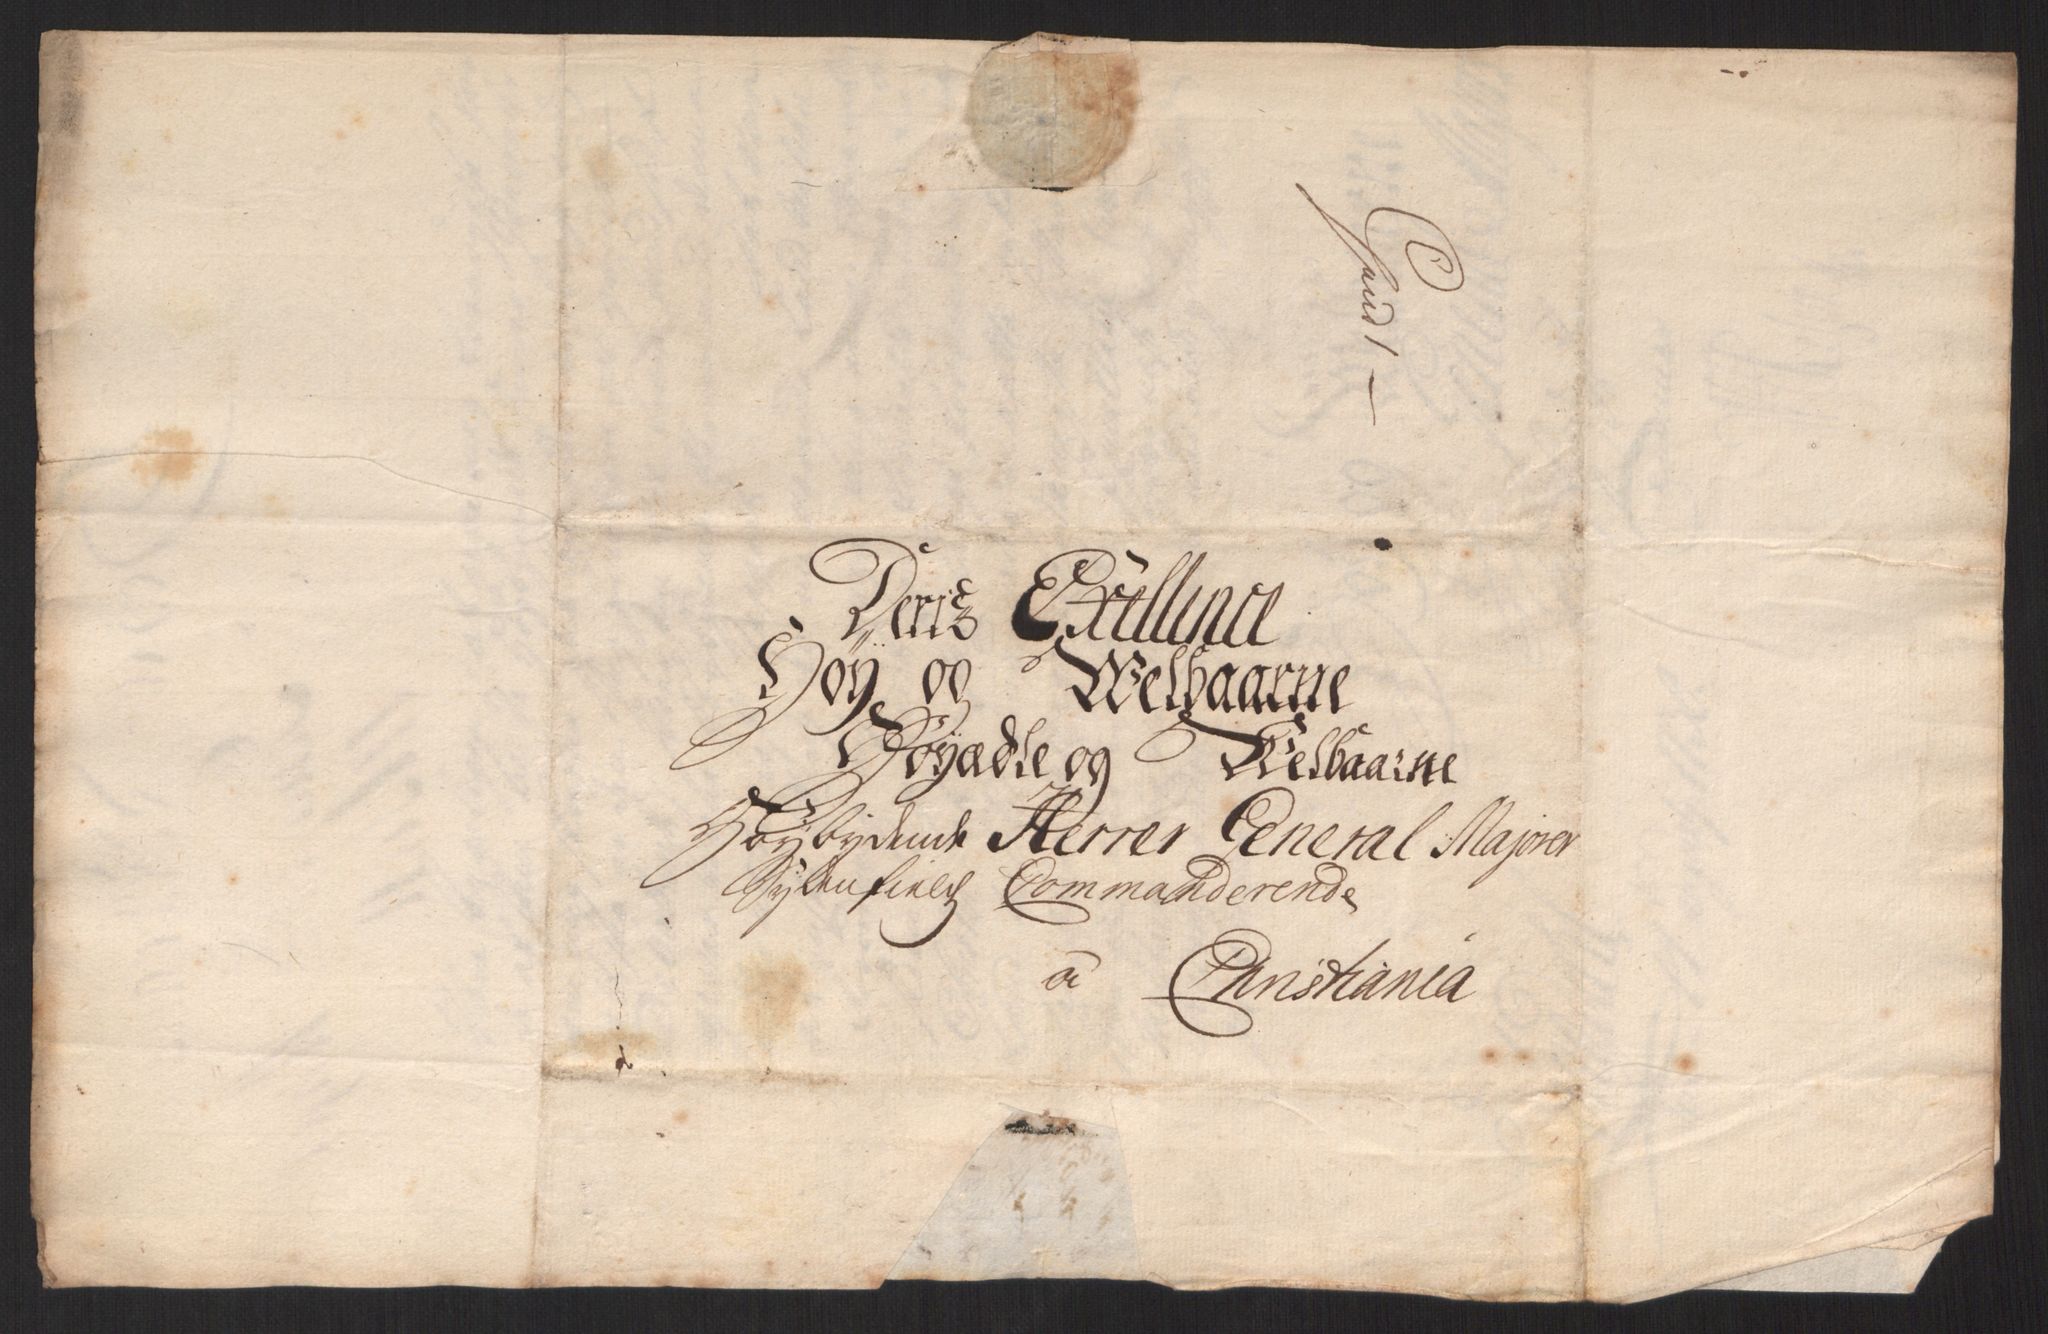 Deris Excellence
Høÿ og Welbaarne
Høyædle og Welbaarne
Høybydende Herrer General Majorer
Commanderende
a Christiania